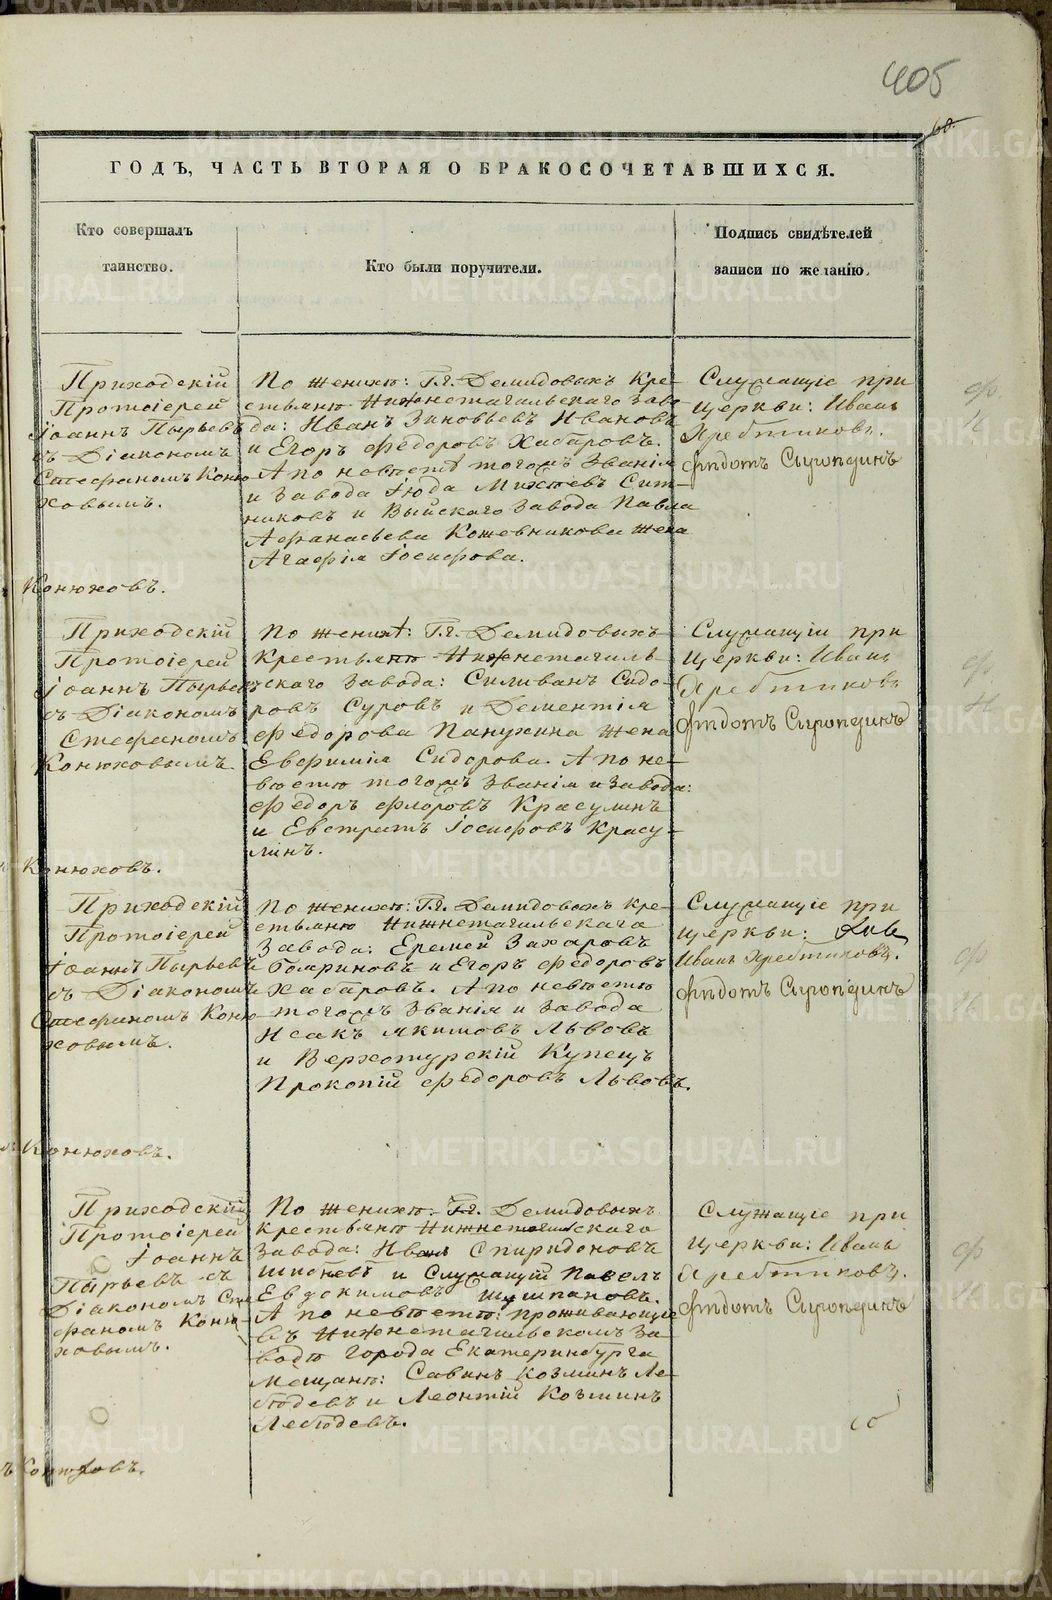 405
60.
ГОДЪ, ЧАСТЬ ВТОРАЯ О БРАКОСОЧЕТАВШИХСЯ.
Кто совершалъ
таинство.
Кто были поручители.
Подпись свидѣтелей
записи по желанію.
Приходскій
Протоіерей
Іоаннъ Пырьевъ
съ Діакономъ
Стефаномъ Коню-
ховымъ.
По женихѣ: Г.г. Демидовыхъ Кре-
стьяне Нижнетагильскаго Заво-
да: Иванъ Зиновьевъ Ивановъ
и Егоръ Федоровъ Хабаровъ.
А по невѣстѣ тогожъ Званія
и Завода Іюда Михѣевъ Сит-
никовъ и Выйскаго Завода Павла
Афанасьева Кожевникова жена
Агафія Іосифова.
Служащіе при
Церкви: Иванъ
Хребтиковъ.
Фѣдотъ Сыропѣдинъ
Конюховъ.
Приходскій
Протоіерей
Іоаннъ Пырьевъ
съ Діакономъ
Стефаномъ
Конюховымъ.
По женихѣ: Г.г. Демидовыхъ
Крестьяне Нижнетагиль-
скаго Завода: Силиванъ Сидо-
ровъ Суровъ и Дементія
Федорова Панухина жена
Евфимія Сидорова. А по не-
вѣстѣ тогожъ Званія и Завода:
Федоръ Флоровъ Красулинъ
и Евстратъ Іосифовъ Красу-
линъ.
Служащіи при
Церкви: Иванъ
Хребтиковъ
Фѣдотъ Сыропѣдинъ
Конюховъ.
Приходскій
Протоіерей
Іоаннъ Пырьевъ
съ Діакономъ
Стефаномъ Коню-
ховымъ.
По женихѣ: Г.г. Демидовыхъ Кре-
стьяне Нижнетагильскаго
Завода: Еремей Захаровъ
и Егоръ Федоровъ
Хабаровъ. А по невѣстѣ
тогожъ Званія и Завода
Исакъ Якимовъ Львовъ
и Верхотурскій Купецъ
Прокопій Федоровъ Львовъ.
Служащіе при
Церкви:
Иванъ Хребтиковъ.
Фѣдотъ Сыропѣдинъ
Конюховъ.
Приходскій
Протоіерей
Іоаннъ
Пырьевъ съ
Діакономъ Сте-
фаномъ Коню-
ховымъ.
По женихѣ: Г.г. Демидовыхъ
Крестьяне Нижнетагильскаго
Завода: Иванъ Спиридоновъ
и Служащій Павелъ
Евдокимовъ Шушпановъ.
А по невѣстѣ: проживающіе
въ Нижнетагильскомъ За-
водѣ города Екатеринбурга
Мещане: Савинъ Козминъ Ле-
бедевъ и Леонтій Козминъ
Лебедевъ.
Служащіе при
Церкви: Иванъ
Хребтиковъ.
Фѣдотъ Сыропѣдинъ
Конюховъ.
METRIKI.GASO-URAL.RU